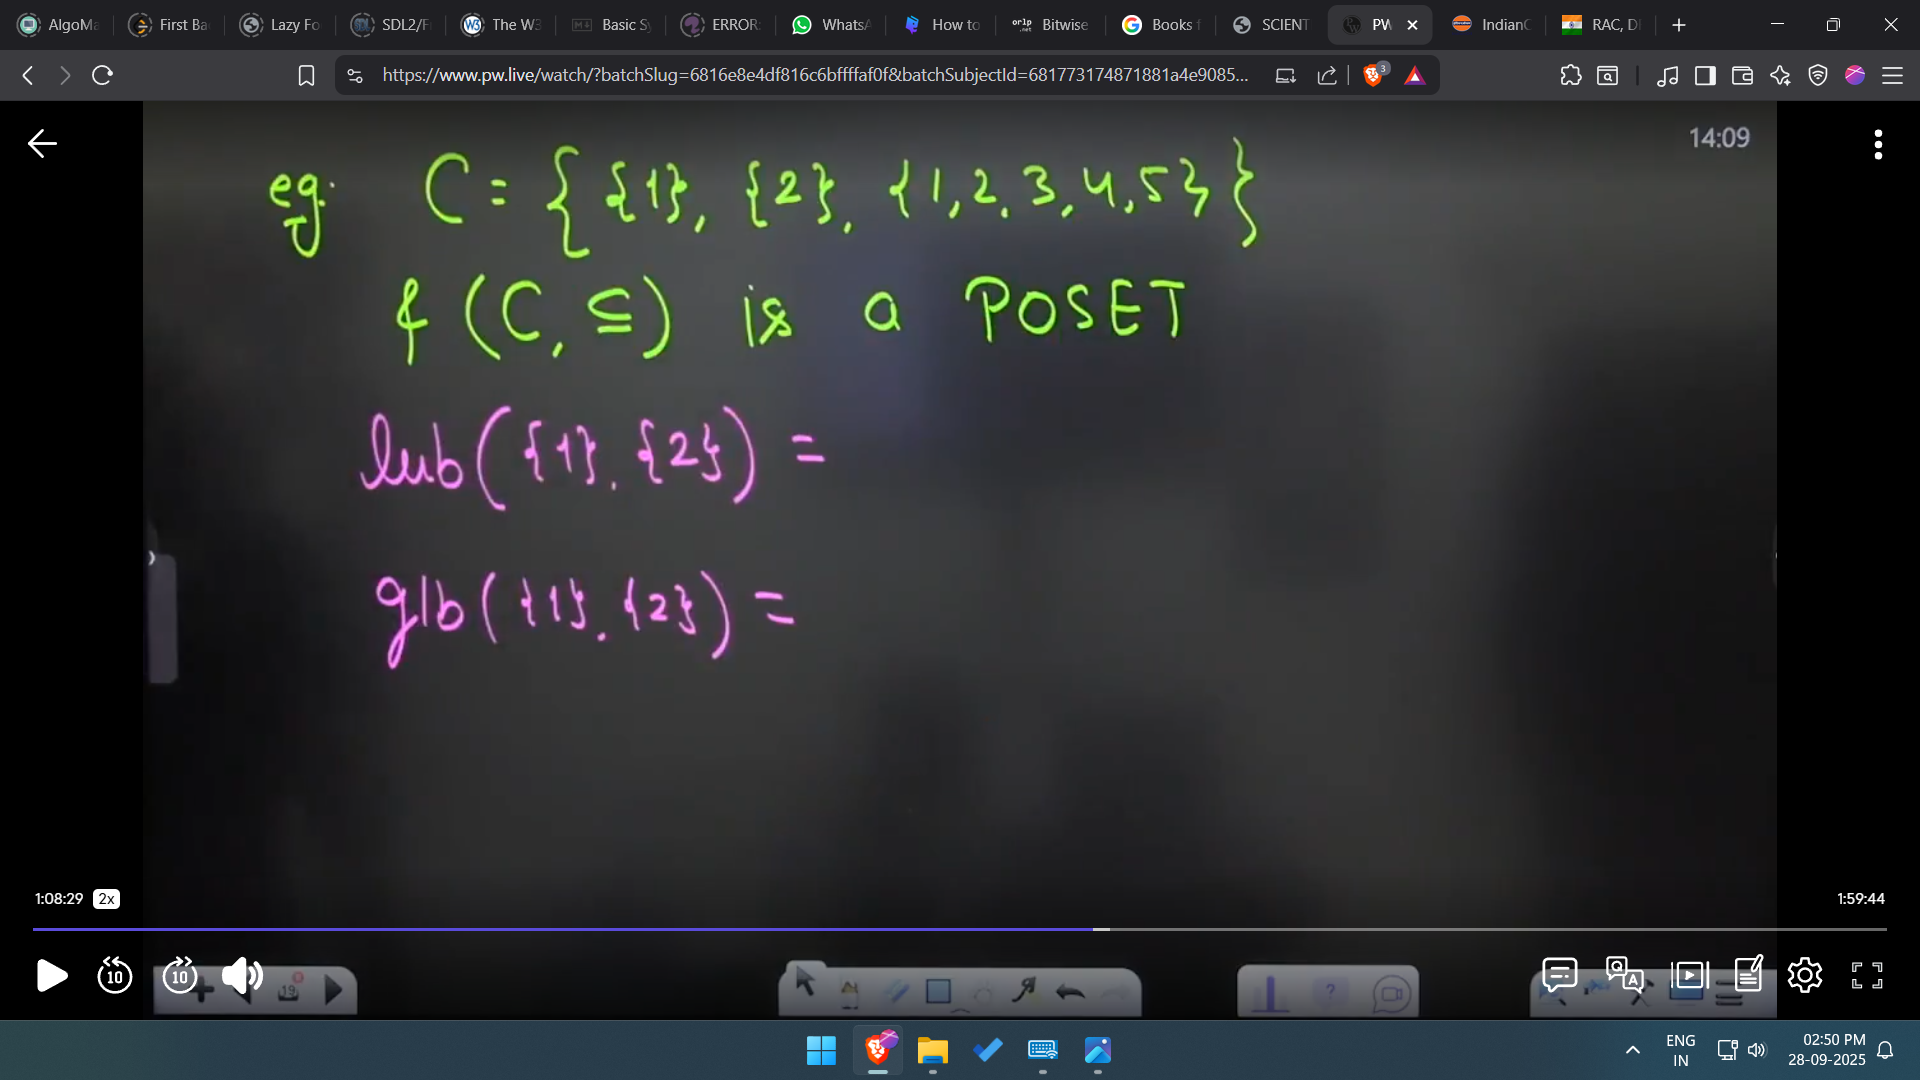 AlgoMa First Ba Lazy Fo SDL2/F The W3 Basic Sy ERROR: WhatsA How to Bitwise Books f SCIENT PW IndianO RAC, D
https://www.pw.live/watch/?batchSlug=6816e8e4df816c6bffffaf0f&batchSubjectId=681773174871881a4e9085... 3
14:09
eg: C = { {1}, {2}, {1,2,3,4,5} }
& (C, ⊆) is a POSET
lub({1}, {2}) =
glb({1}, {2}) =
1:08:29 2x 1:59:44
10 10 19 ? Q A
ENG 02:50 PM
IN 28-09-2025